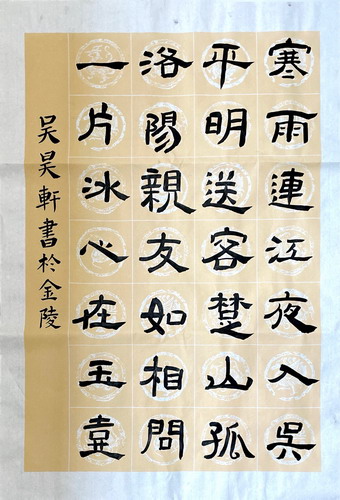 寒雨連江夜入吳
平明送客楚山孤
洛陽親友如相問
一片冰心在玉壺
吳昊軒書於金陵